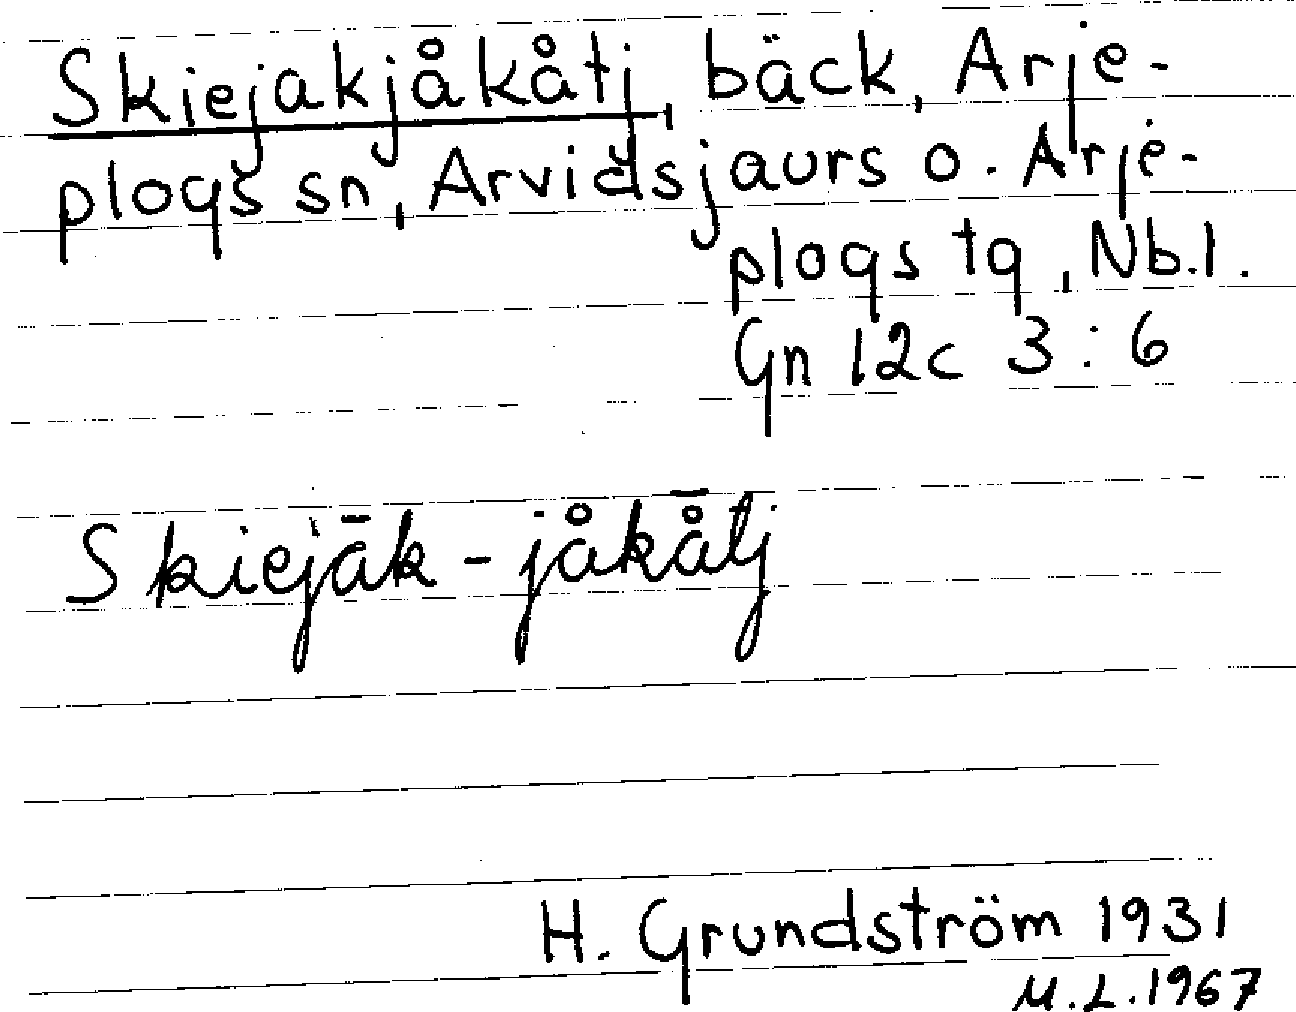 Skiejakjåkåtj, bäck, Arje-
plogs sn, Arvidsjaurs o. Arje-
plogs tg, Nb.l.
Gn 12c 3:6
Skiejāk-jåkå̄tj
H. Grundström 1931
M.L.1967